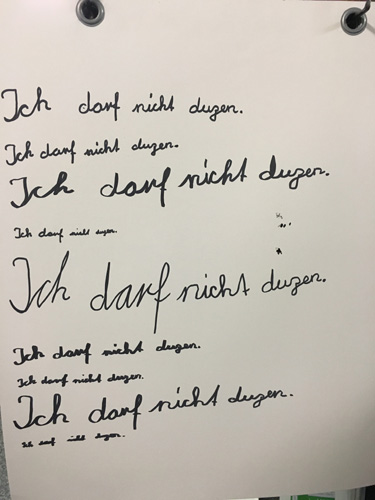 Ich darf nicht duzen.
Ich darf nicht duzen.
Ich darf nicht duzen.
Ich darf nicht duzen.
Ich darf nicht duzen.
Ich darf nicht duzen.
Ich darf nicht duzen.
Ich darf nicht duzen.
Ich darf nicht duzen.